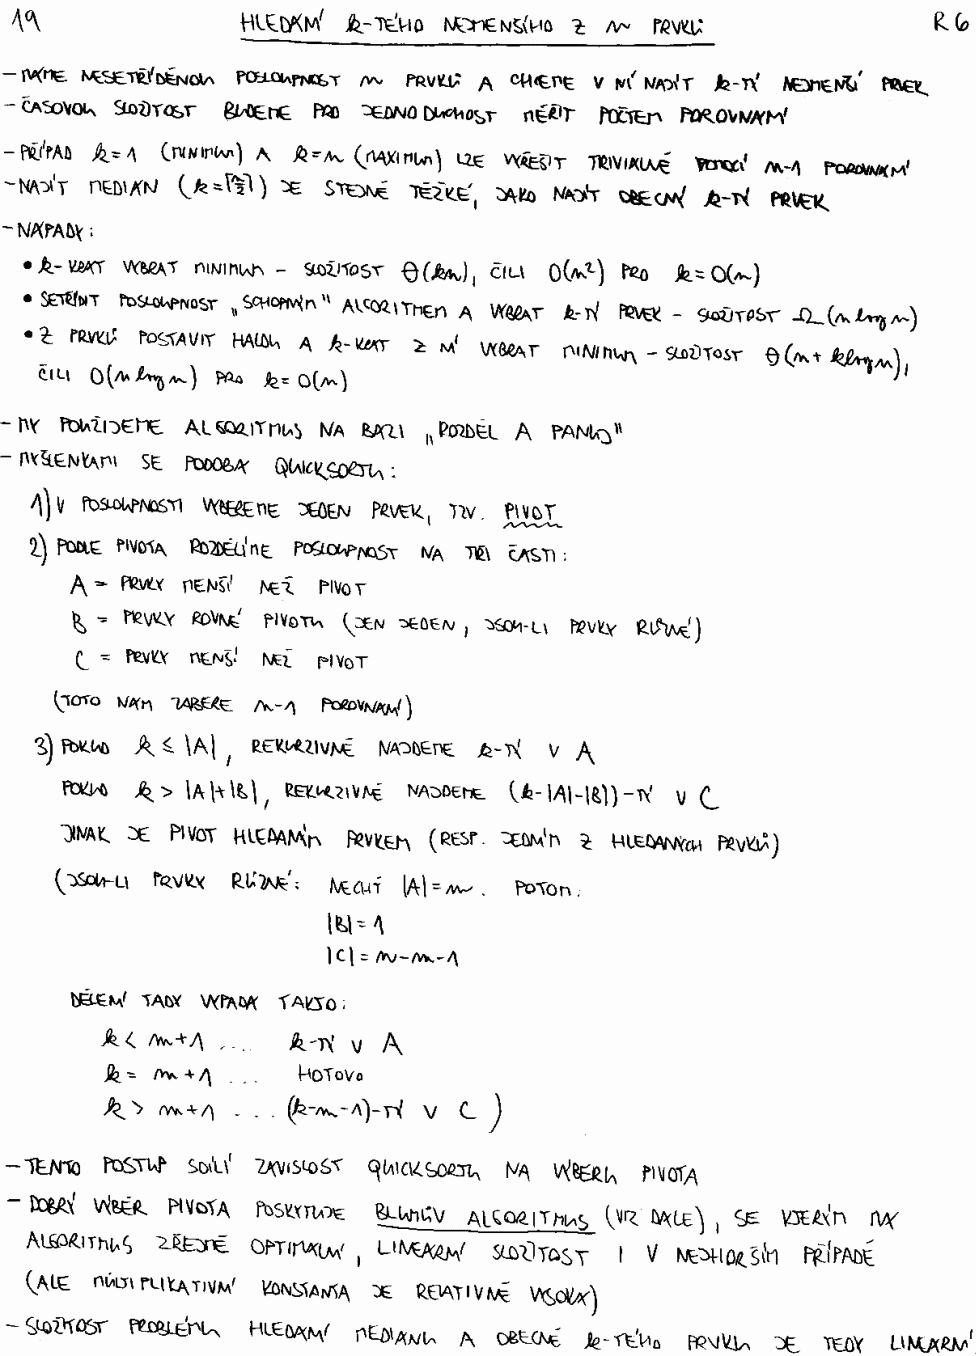 19 HLEDÁNÍ k-TÉHO NEJMENŠÍHO Z n PRVKŮ R6
- MÁME NESETŘÍDĚNOU POSLOUPNOST n PRVKŮ A CHCEME V NÍ NAJÍT k-TÝ NEJMENŠÍ PRVEK
- ČASOVOU SLOŽITOST BUDEME PRO JEDNODUCHOST MĚŘIT POČTEM POROVNÁNÍ
- PŘÍPAD k=1 (MINIMUM) A k=n (MAXIMUM) LZE VYŘEŠIT TRIVIÁLNĚ POMOCÍ n-1 POROVNÁNÍ
- NAJÍT MEDIÁN (k=⌈n/2⌉) JE STEJNĚ TĚŽKÉ, JAKO NAJÍT OBECNÝ k-TÝ PRVEK
- NÁPADY:
• k-KRÁT VYBRAT MINIMUM - SLOŽITOST Θ(kn), ČILI O(n²) PRO k=O(n)
• SETŘÍDIT POSLOUPNOST „SCHOPNÝM" ALGORITMEM A VYBRAT k-TÝ PRVEK - SLOŽITOST Ω(n log n)
• Z PRVKŮ POSTAVIT HALDU A k-KRÁT Z NÍ VYBRAT MINIMUM - SLOŽITOST Θ(n + k log n),
ČILI O(n log n) PRO k=O(n)
- MY POUŽIJEME ALGORITMUS NA BÁZI „ROZDĚL A PANUJ"
- MYŠLENKAMI SE PODOBÁ QUICKSORTU:
1) V POSLOUPNOSTI VYBEREME JEDEN PRVEK, TZV. PIVOT
2) PODLE PIVOTA ROZDĚLÍME POSLOUPNOST NA TŘI ČÁSTI:
A = PRVKY MENŠÍ NEŽ PIVOT
B = PRVKY ROVNÉ PIVOTU (JEN JEDEN, JSOU-LI PRVKY RŮZNÉ)
C = PRVKY MENŠÍ NEŽ PIVOT
(TOTO NÁM ZABERE n-1 POROVNÁNÍ)
3) POKUD k ≤ |A|, REKURZIVNĚ NAJDEME k-TÝ V A
POKUD k > |A|+|B|, REKURZIVNĚ NAJDEME (k-|A|-|B|)-TÝ V C
JINAK JE PIVOT HLEDANÝM PRVKEM (RESP. JEDNÍM Z HLEDANÝCH PRVKŮ)
(JSOU-LI PRVKY RŮZNÉ: NECHŤ |A|=m. POTOM:
|B|=1
|C|=n-m-1
DĚLENÍ TADY VYPADÁ TAKTO:
k < m+1 .... k-TÝ V A
k = m+1 ... HOTOVO
k > m+1 ... (k-m-1)-TÝ V C )
- TENTO POSTUP SDÍLÍ ZÁVISLOST QUICKSORTU NA VÝBĚRU PIVOTA
- DOBRÝ VÝBĚR PIVOTA POSKYTUJE BLUMŮV ALGORITMUS (VIZ DÁLE), SE KTERÝM MÁ
ALGORITMUS ZŘEJMĚ OPTIMÁLNÍ, LINEÁRNÍ SLOŽITOST I V NEJHORŠÍM PŘÍPADĚ
(ALE MULTIPLIKATIVNÍ KONSTANTA JE RELATIVNĚ VYSOKÁ)
- SLOŽITOST PROBLÉMU HLEDÁNÍ MEDIÁNU A OBECNĚ k-TÉHO PRVKU JE TEDY LINEÁRNÍ